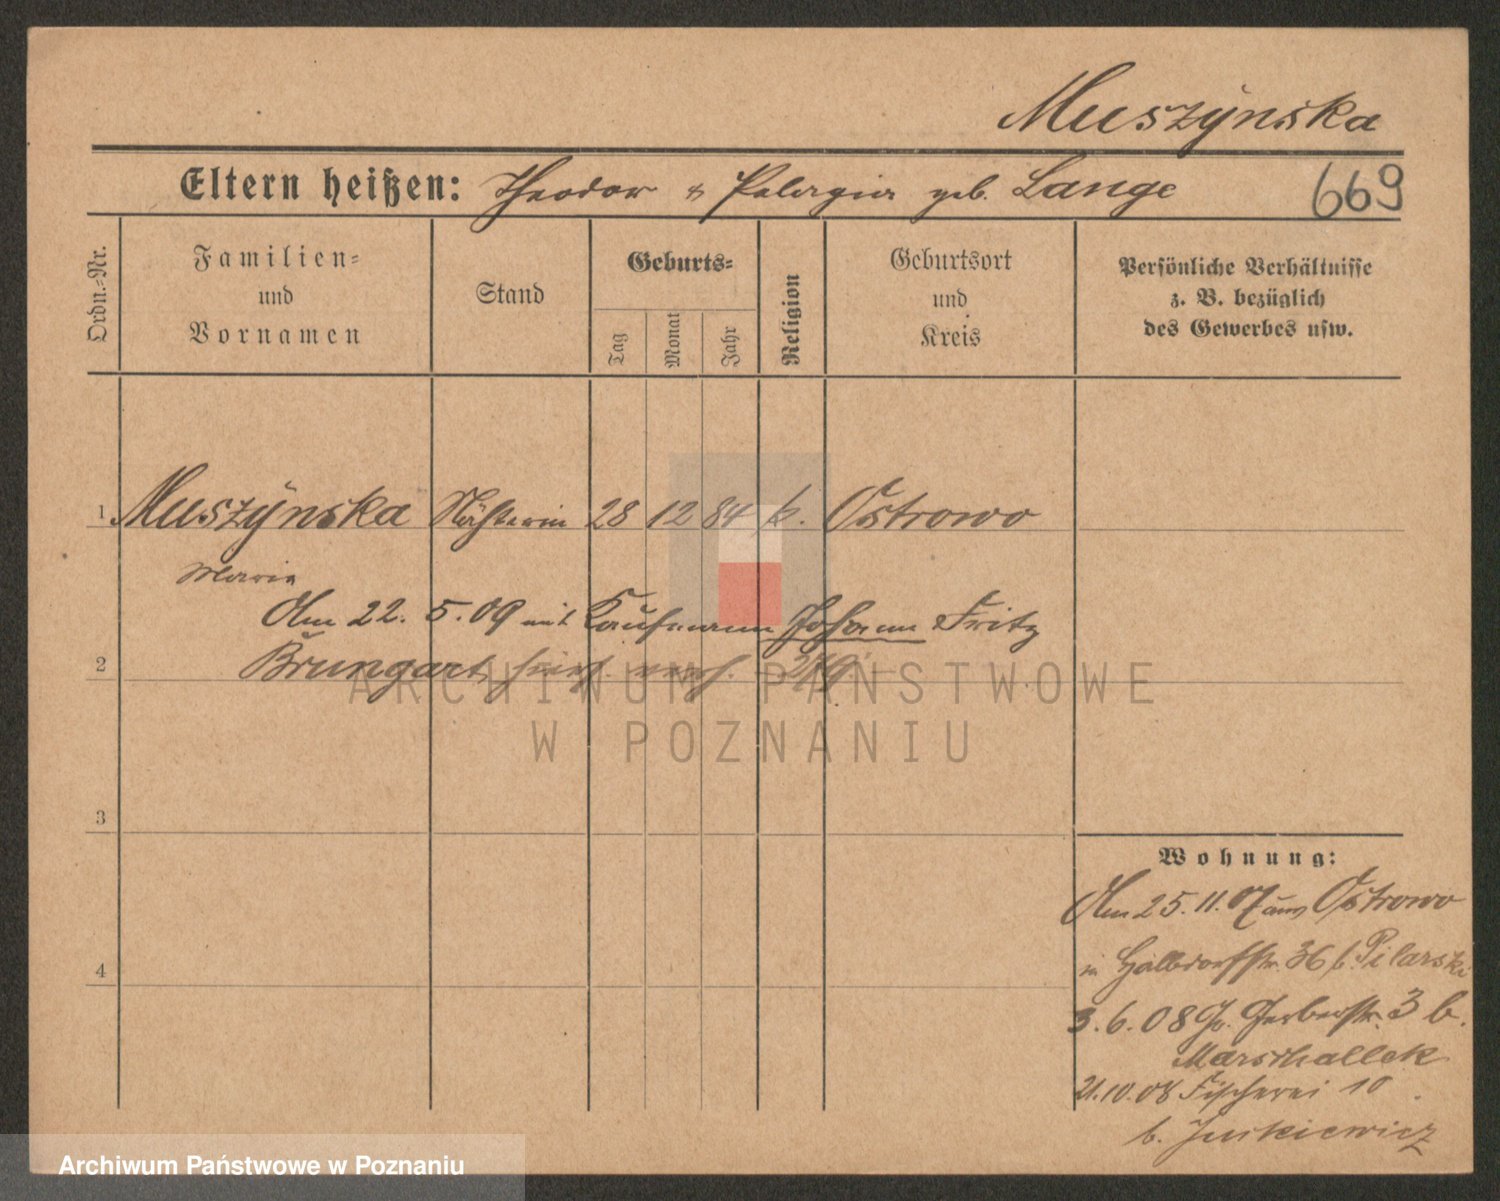 Muszýnska
Eltern heißen: Theodor u Pelagia geb. Lange
669
Ordn.-Nr.
Familien-
und
Vornamen
Stand
Geburts-
Tag
Monat
Jahr
Religion
Geburtsort
und
Kreis
Persönliche Verhältnisse
z. B. bezüglich
des Gewerbes usw.
1 Muszýnska Nähterin 28 12 84 k. Ostrowo
Maria
Am 22. 5. 09 mit Kaufmann Johann Fritz
2 Brungart, hier verh.
ARCHIWUM PAŃSTWOWE
W POZNANIU
3
Wohnung:
Am 25. 11. 07 aus Ostrowo
in Halbdorfstr. 36 b. Pilarski
4
3. 6. 08 Gr. Gerberstr. 3 b.
Marschallek
21. 10. 08 Fischerei 10
b. Jurkiewicz
Archiwum Państwowe w Poznaniu